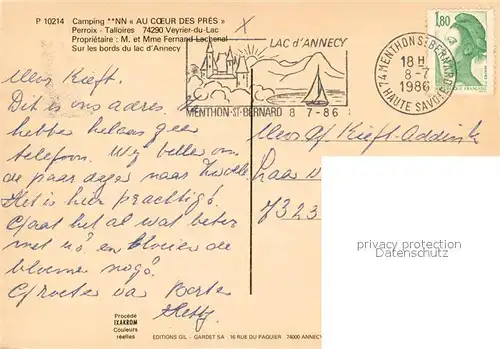 P 10214 Camping **NN « AU CŒUR DES PRÉS »
Perroix - Talloires 74290 Veyrier-du-Lac
Propriétaire : M. et Mme Fernand Lachenal
Sur les bords du lac d'Annecy
X
LAC d'ANNECY
MENTHON-ST-BERNARD 8 7-86
74 MENTHON ST BERNARD
18 H
8-7
1986
HAUTE SAVOIE
1,80
Mevr. Kieft.
Dit is ons adres.
hebben helaas geen
telefoon. Wy bellen om
de paar dagen naar Zwolle.
Het is hier prachtig!
Gaat het al wat beter
met U? en bloeien de
bloemen nog?
Groeten van
Hetty.
Mevr. Kieft-Addink
Laan v
7323
privacy protection
privacy protection
Procédé
IXAKROM
Couleurs
réelles
EDITIONS GIL - GARDET SA 16 RUE DU PAQUIER 74000 ANNECY